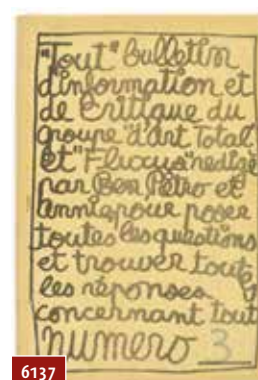 "Tout" bulletin
d'information et
de Critique du
groupe "d'art Total
et "Fluxus" redigé
par Ben Pétro et
Annie pour poser
toutes les questions
et trouver touts
les réponses
concernant tout
numero 3
6137